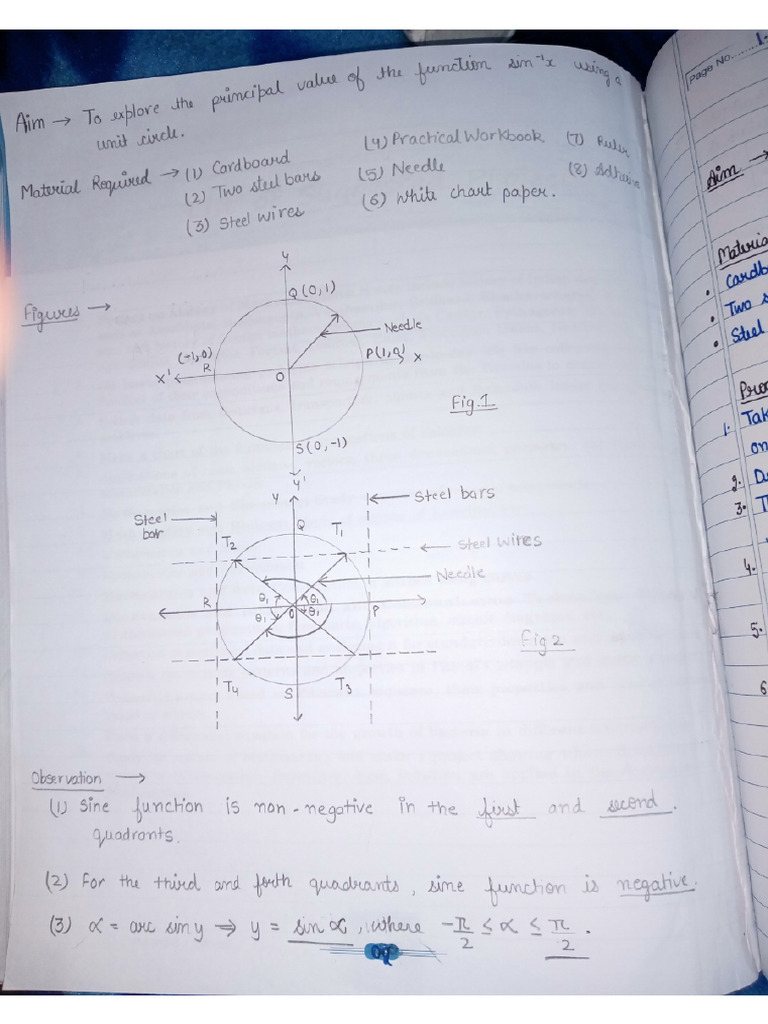 Aim → To explore the principal value of the function sin⁻¹x using a
unit circle.
Material Required → (1) Cardboard
(2) Two steel bars
(3) Steel wires
(4) Practical Workbook
(5) Needle
(6) White chart paper.
(7) Ruler
(8) Adhesive
Figures →
Y
Q (0,1)
Needle
(-1,0)
R
P(1,0)
X
X'
O
Fig.1
S(0,-1)
Y'
Y
Steel bars
Steel
bar
Q
T₂
T₁
Steel wires
Needle
θ₁
θ₁
R
O
P
θ₁
θ₁
Fig 2
T₄
S
T₃
Observation →
(1) Sine function is non-negative in the first and second.
quadrants.
(2) For the third and forth quadrants, sine function is negative.
(3) α = arc sin y ⇒ y = sin α, where -π/2 ≤ α ≤ π/2.
Page No.
1.
Aim →
Materia
• Cardb
• Two s
• Steel
Proc
1. Tak
on
2. D
3. T
4.
5.
6